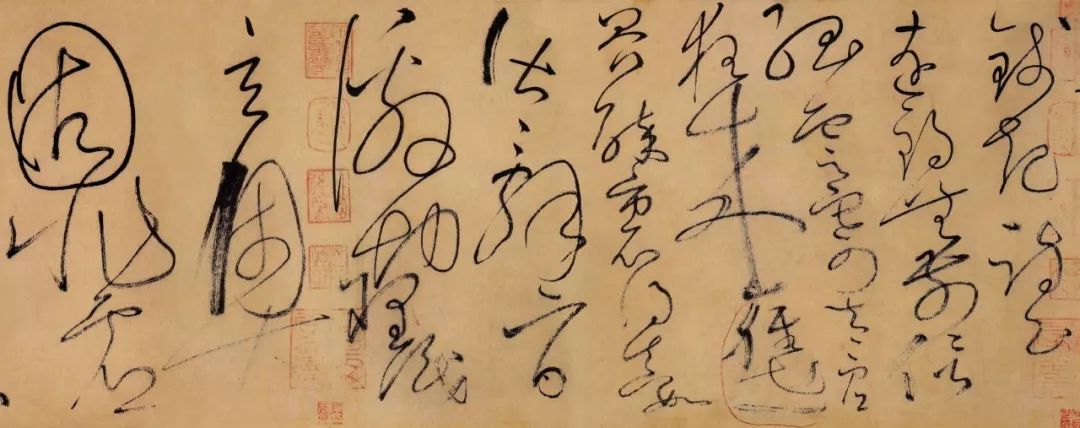 錢起詩云
遠鶴無前侶
孤雲寄太虛
狂來輕
世界醉裏得真如
皆辭旨
激切理識
玄奧
固非虛